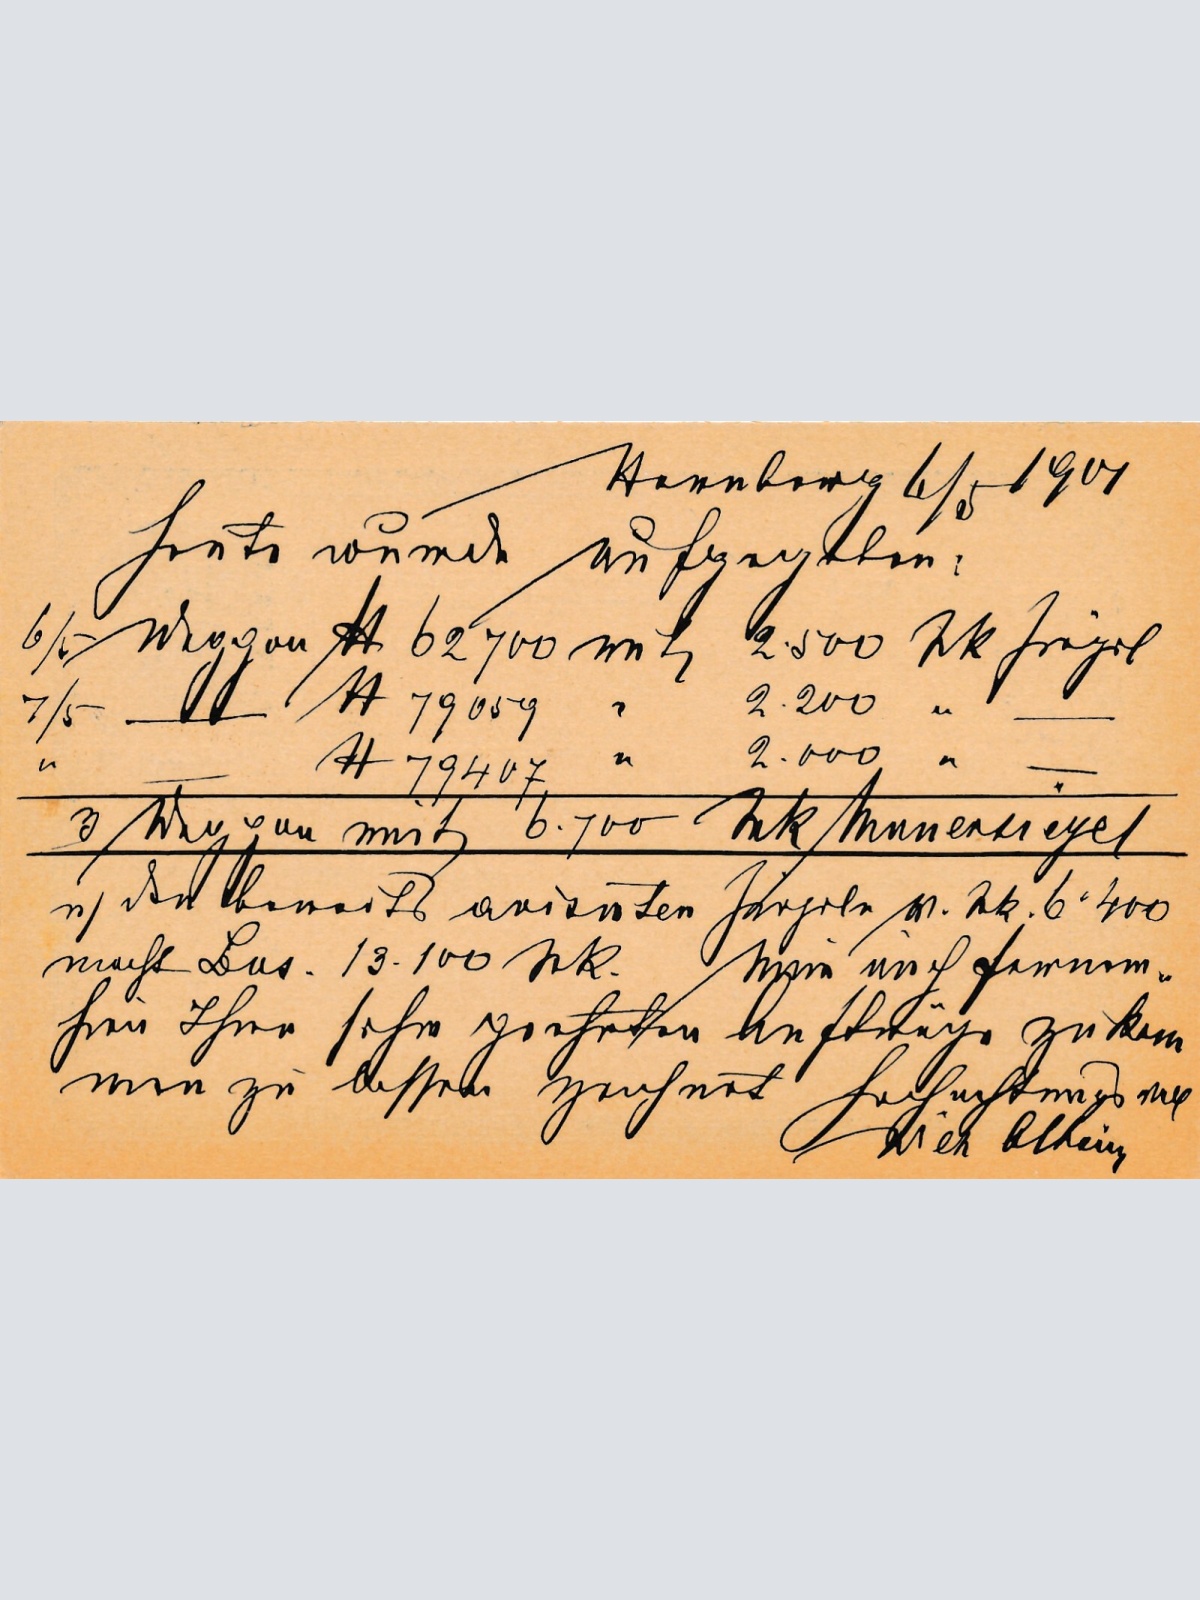 Hernberg 6/5 1901
Heute wurde aufgegeben:
6/5 Waggon # 62700 mit 2.500 Stk Ziegel
7/5 —"— # 79059 " 2.200 " —
" — # 79407 " 2.000 " —
3 Waggon mit 6.700 Stk Mauerziegel
u/ den bereits avisirten Ziegeln v. Stk. 6.400
macht Sus. 13.100 Stk. Mir auch fernern-
hin Ihre sehr geehrten Aufträge zukom
men zu lassen zeichnet Hochachtungsvoll